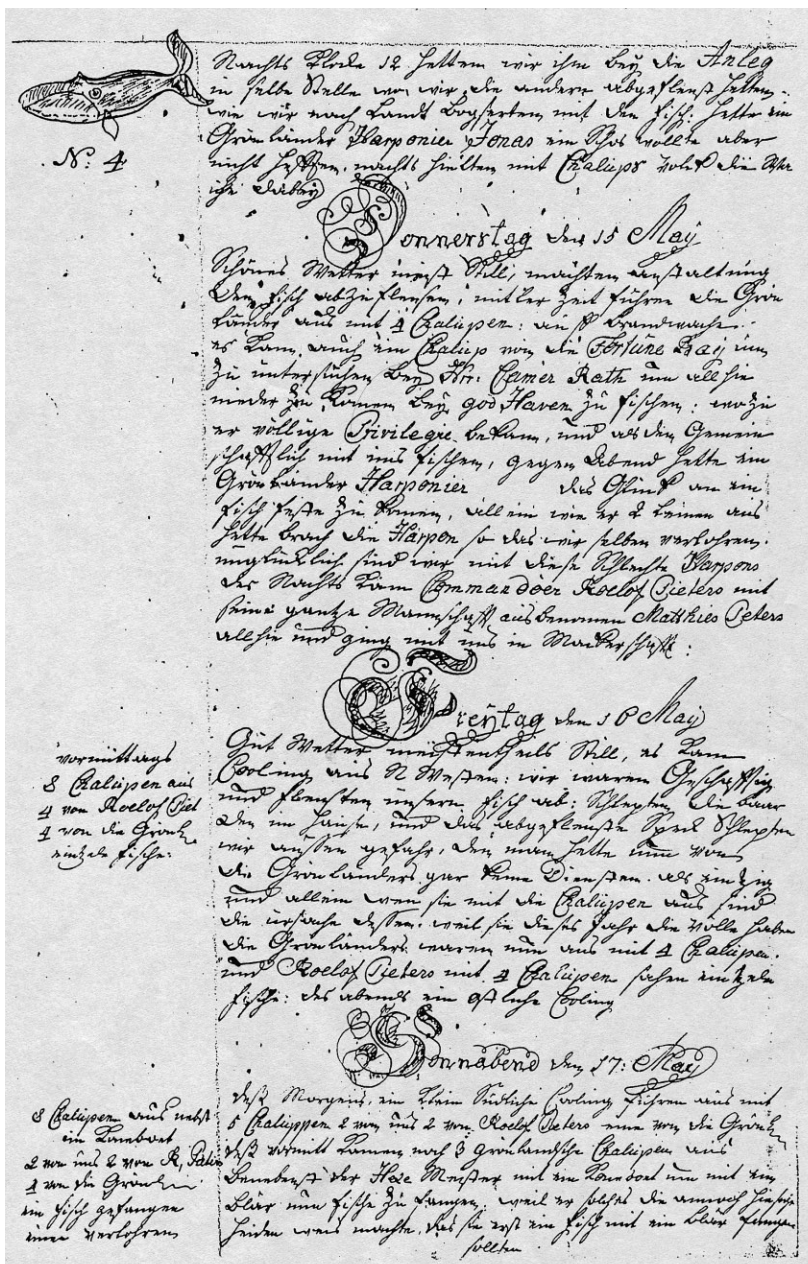 Nachts Klocke 12 hetten wir ihm bey die Anleg
in selbe Stelle wo wir die andern abgeflenst hetten.
wie wir nach Landt bogserten mit den fisch: hette ein
Grönländer Harponier Jonas ein Schos wolte aber
nicht heften. nachts hielten mit Chalups volck die Wa
che dabey
N: 4
Donnerstag den 15 May
Schönes Wetter meist Still, machten anstaltung
den fisch abzuflensen, mitler Zeit führen die Grön
länder aus mit 4 Chalupen: auf brandwache.
es kam auch ein Chalup von die Fortune Bay um
zu untersuchen bey Hr: Camer Rath um all hie
nieder zu komen bey god Haven zu fischen: wozu
er völlige Privilegie bekam, und als den Gemein
schafftlich mit uns fischen, gegen Abend hette ein
Grönländer Harponier das Glück an ein
fisch feste zu komen, allein wie er 2 Leinen aus
hette brach die Harpon so das wir selben verlohren.
unglücklich sind wir mit diese Schlechte Harpons
des Nachts kam Commandoer Roelof Pieters mit
seine gantze Mannschafft ausbenomen Matthies Peters
allhie und ging mit uns in Mackerschafft:
Freytag den 16 May
vormittags
8 Chalupen aus
4 von Roelof Piet
4 von die Grönl
eintzele fische:
Gut Wetter meistentheils Still, es kam
Cooling aus N Westen: wir waren Geschäfftig
und flensten unsern fisch ab: Schlepten die baar
den im Hause, und das abgeflenste Speck Schlepten
wir aussen gefahr, den man hette nun von
die Grönländers gar keine Diensten. als eintzig
und allein wen sie mit die Chalupen aus sind
die ursache dessen weil sie dieses Jahr die völle haben
die Grönländers waren nun aus mit 4 Chalupen.
und Roelof Pieters mit 4 Chalupen sahen eintzele
fische: des abends ein östliche Cooling
Sonnabend den 17: May
8 Chalupen aus nebst
ein Kamboot
2 von uns 2 von R, Pieters
4 von die Grönl
ein fisch gefangen
einen verlohren
dess Morgens ein klein Südliche Cooling führen aus mit
5 Chaluppen 2 von uns 2 von Roelof Pieters eine von die Grönl
dess vormitt kamen noch 3 grönlandsche Chalupen aus
benebenst der Hexe Meister mit ein boot um mit ein
blär nun fische zu fangen, weil er solches die annoch
heiden weis machte, das sie erst ein fisch mit ein blär fangen
sollten